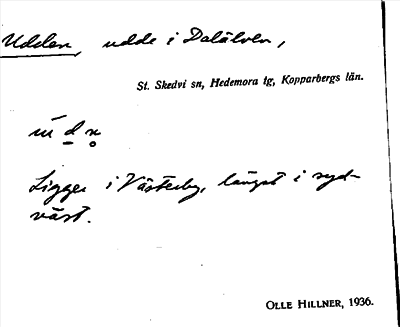 Udden, udde i Dalälven,
St. Skedvi sn, Hedemora tg, Kopparbergs län.
Ligger i Västerby, längst i syd-
väst.
OLLE HILLNER, 1936.